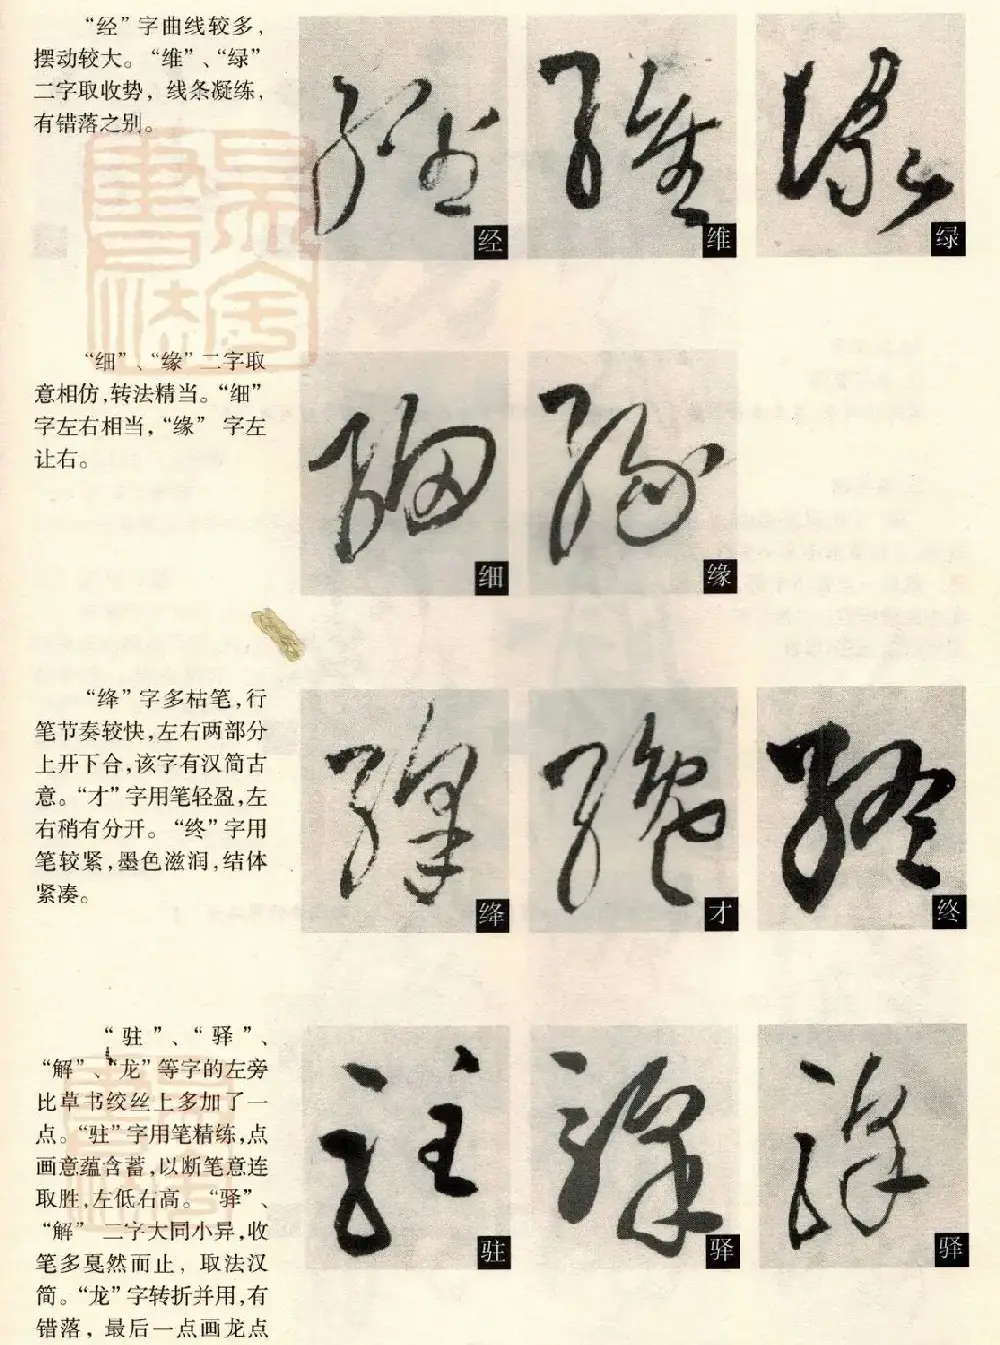 “经”字曲线较多，
摆动较大。“维”、“绿”
二字取收势，线条凝练，
有错落之别。
经
维
绿
“细”、“缘”二字取
意相仿，转法精当。“细”
字左右相当，“缘”字左
让右。
细
缘
“绛”字多枯笔，行
笔节奏较快，左右两部分
上开下合，该字有汉简古
意。“才”字用笔轻盈，左
右稍有分开。“终”字用
笔较紧，墨色滋润，结体
紧凑。
绛
才
终
“驻”、“驿”、
“解”、“龙”等字的左旁
比草书绞丝上多加了一
点。“驻”字用笔精练，点
画意蕴含蓄，以断笔意连
取胜，左低右高。“驿”、
“解”二字大同小异，收
笔多戛然而止，取法汉
简。“龙”字转折并用，有
错落，最后一点画龙点
驻
驿
驿